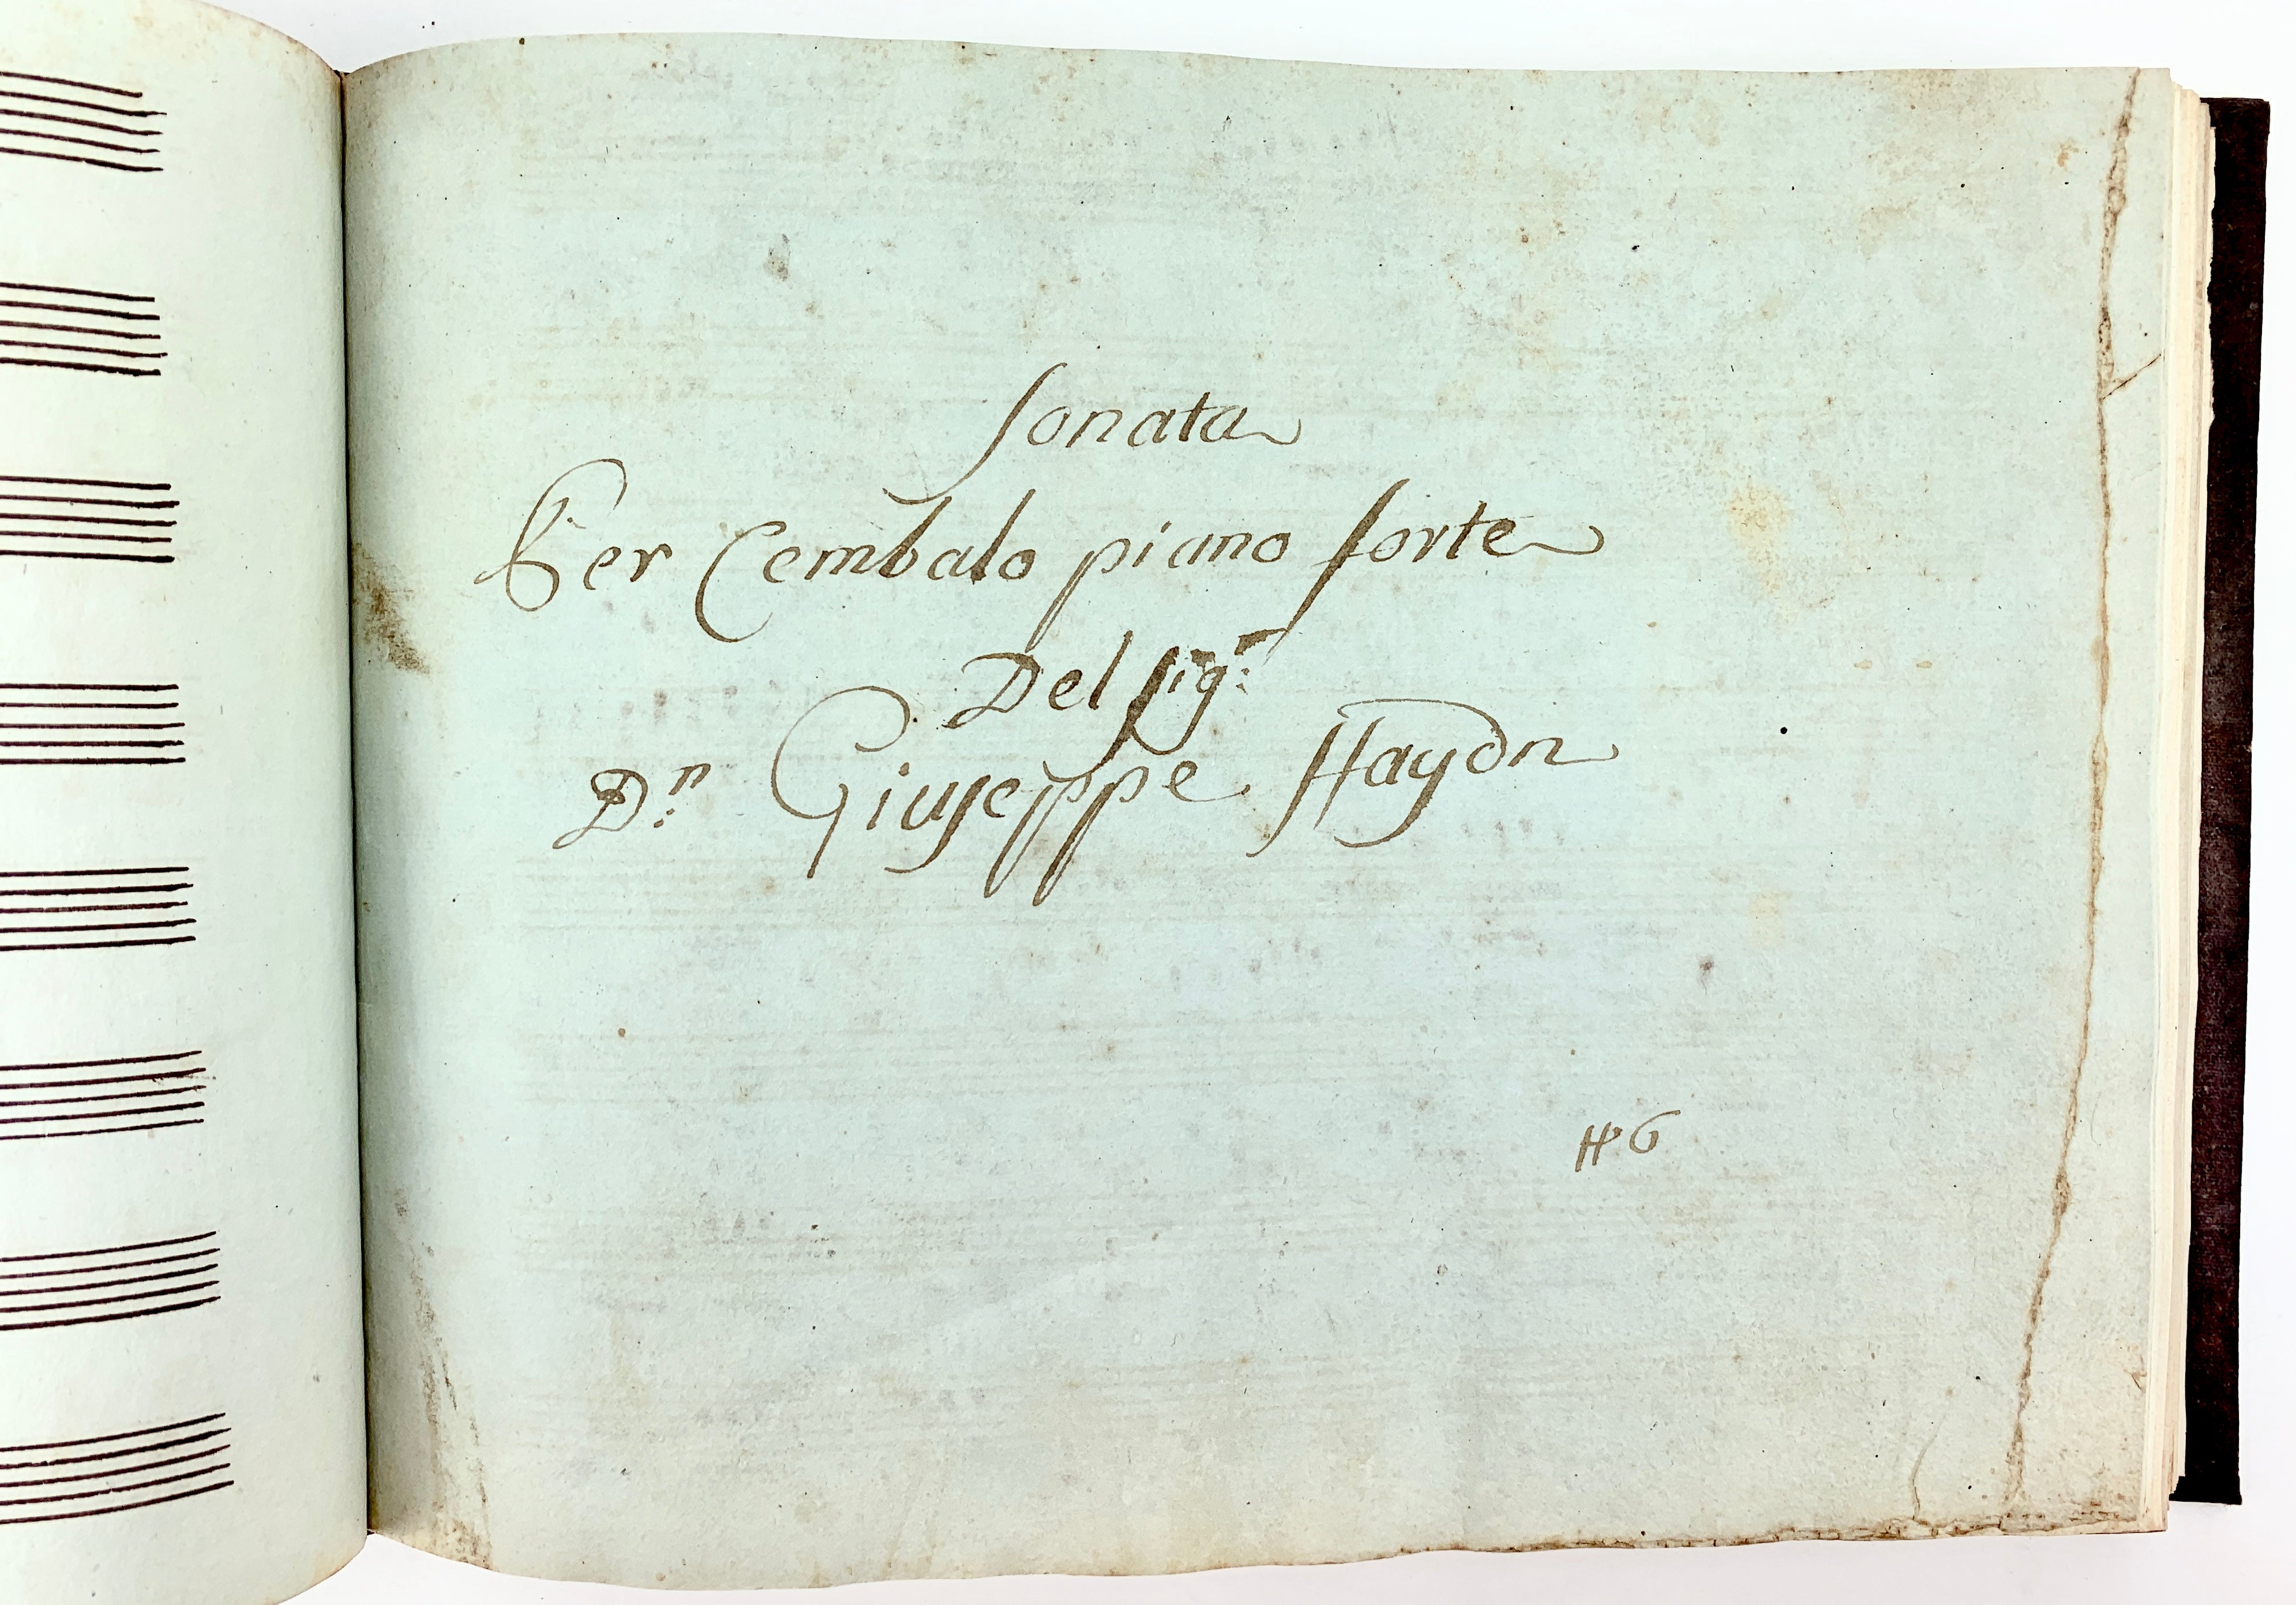 Sonata
Per Cembalo piano forte
Del Sig.r
D.n Giuseppe Haydn
6